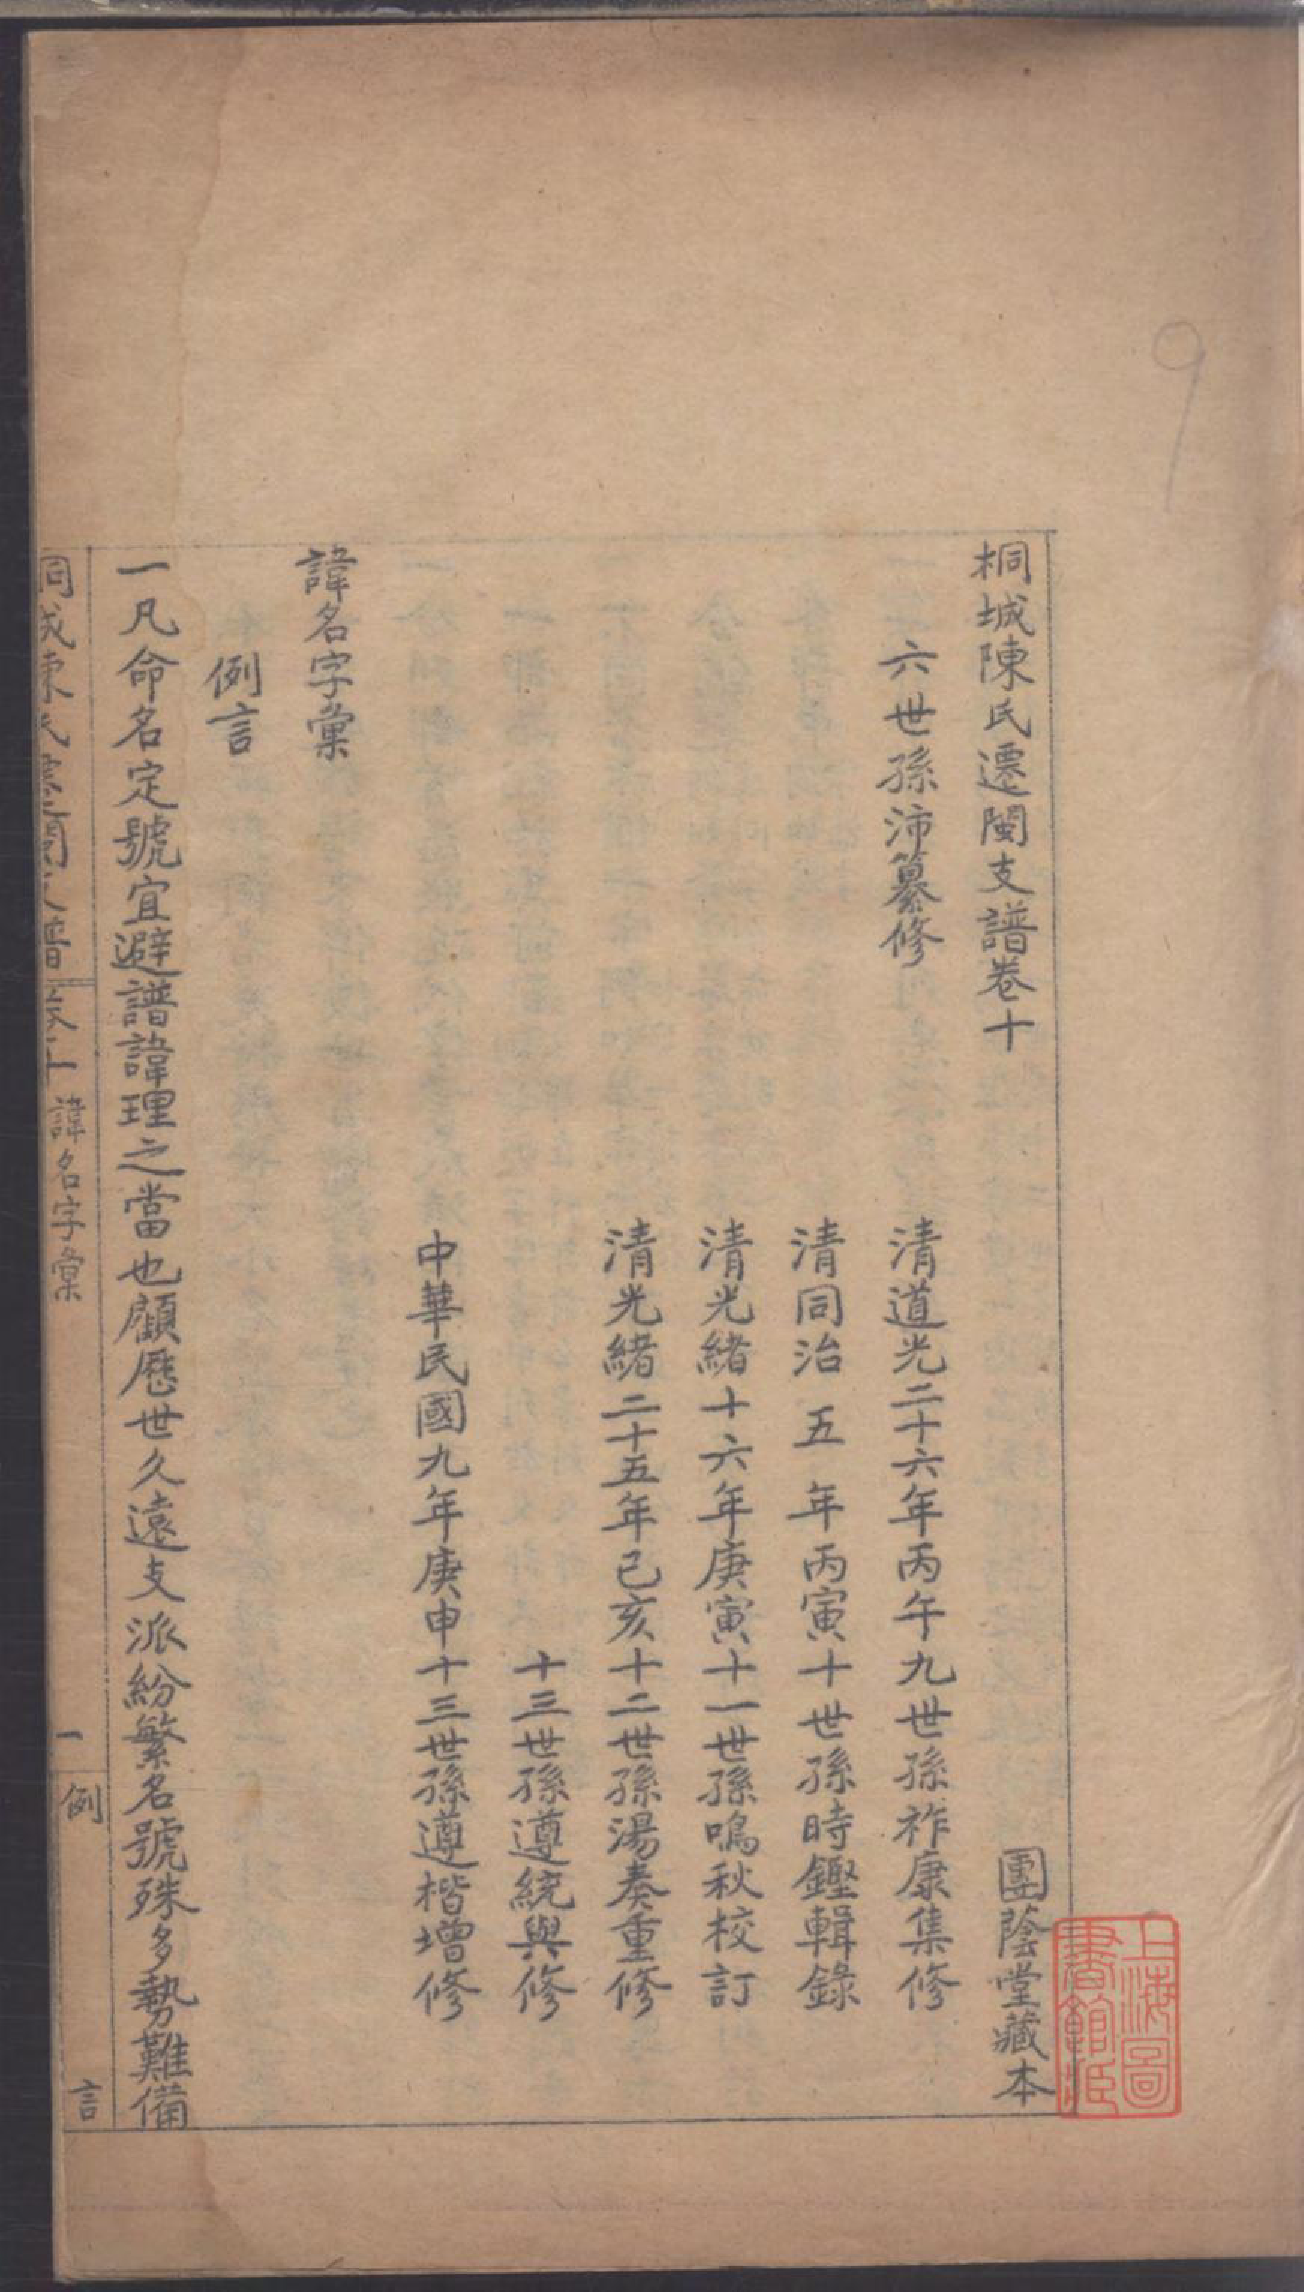 9
桐城陳氏遷閩支譜卷十
團蔭堂藏本
上海圖書館藏
六世孫沛纂修
清道光二十六年丙午九世孫祚康集修
清同治五年丙寅十世孫時鏗輯錄
清光緒十六年庚寅十一世孫鳴秋校訂
清光緒二十五年己亥十二世孫湯奏重修
十三世孫遵統與修
中華民國九年庚申十三世孫遵楷增修
諱名字彙
例言
一凡命名定號宜避譜諱理之當也顧歷世久遠支派紛繁名號殊多勢難備
桐城陳氏遷閩支譜 卷十 諱名字彙 一 例言